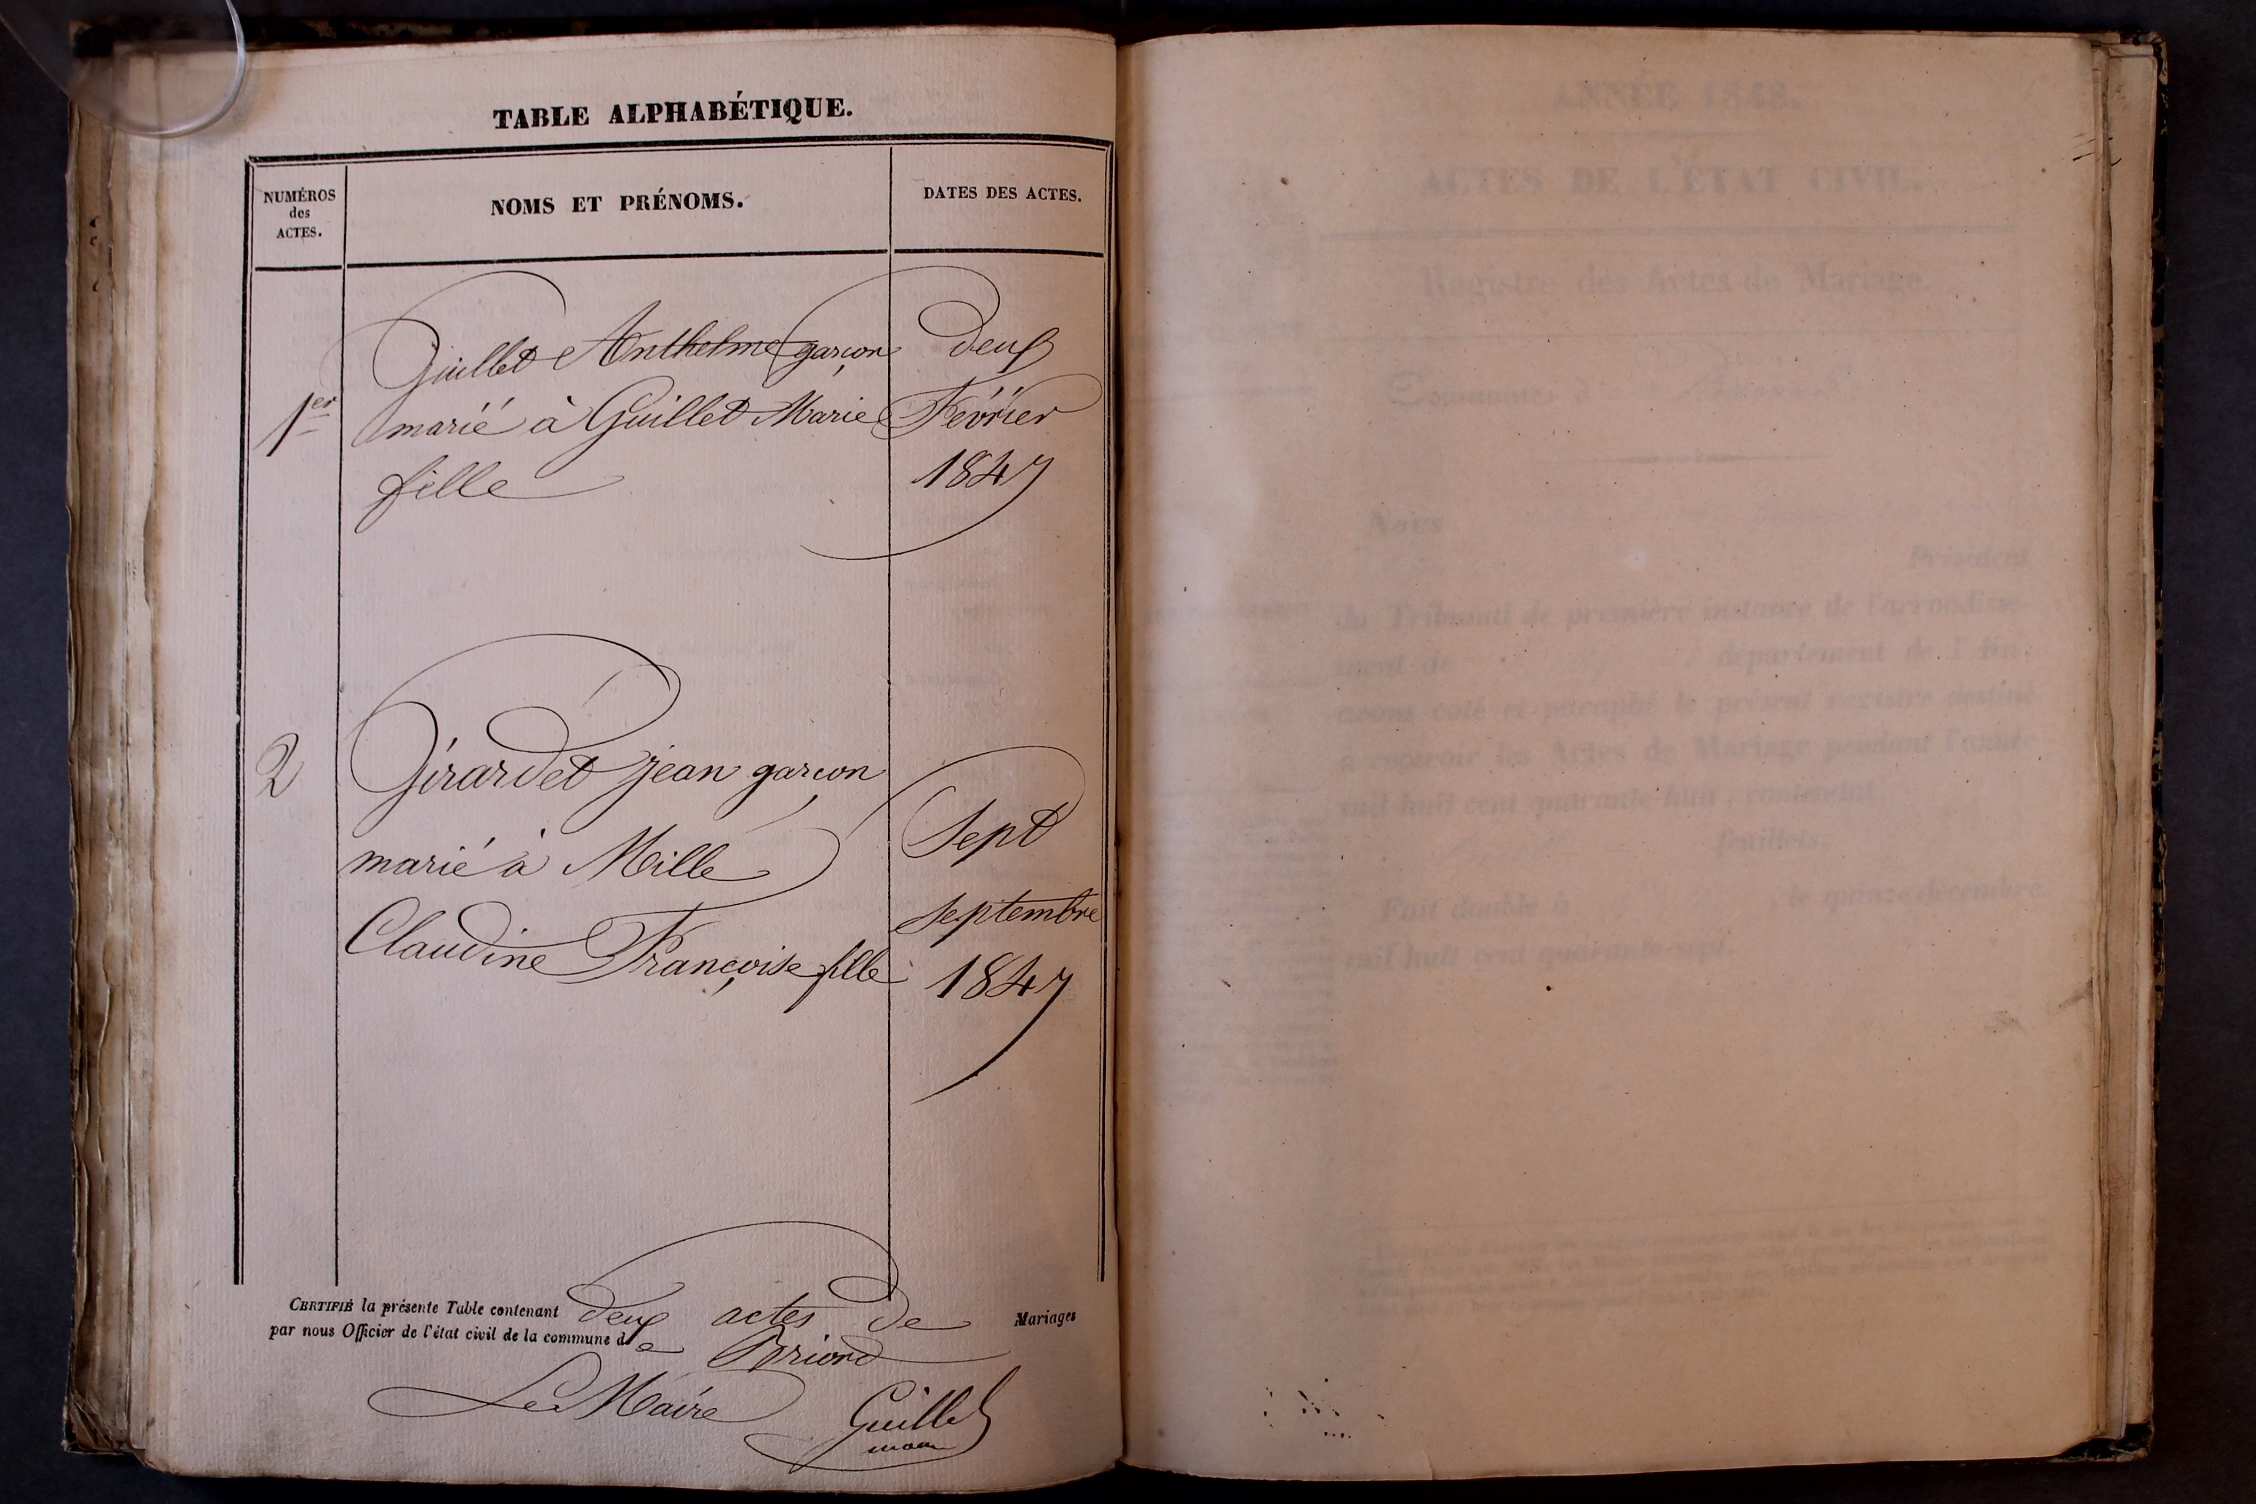 TABLE ALPHABÉTIQUE.
NUMÉROS
des
ACTES.
NOMS ET PRÉNOMS.
DATES DES ACTES.
1er
Guillet Anthelme garçon
marié à Guillet Marie
fille
deux
Février
1847
2
Girardet jean garçon
marié à Mille
Claudine Françoise fille
Sept
septembre
1847
CERTIFIÉ la présente Table contenant deux actes de Mariages
par nous Officier de l'état civil de la commune de Briord
Le Maire
Guillet
maire
ANNÉE 1848.
ACTES DE L'ÉTAT CIVIL.
Registre des Actes de Mariage.
Commune d
Nous
Président
du Tribunal de première instance de l'arrondisse-
ment de département de l'Ain,
avons coté et paraphé le présent registre destiné
à recevoir les Actes de Mariage pendant l'année
mil huit cent quarante-huit, contenant
feuillets.
Fait double à le quinze décembre
mil huit cent quarante-sept.